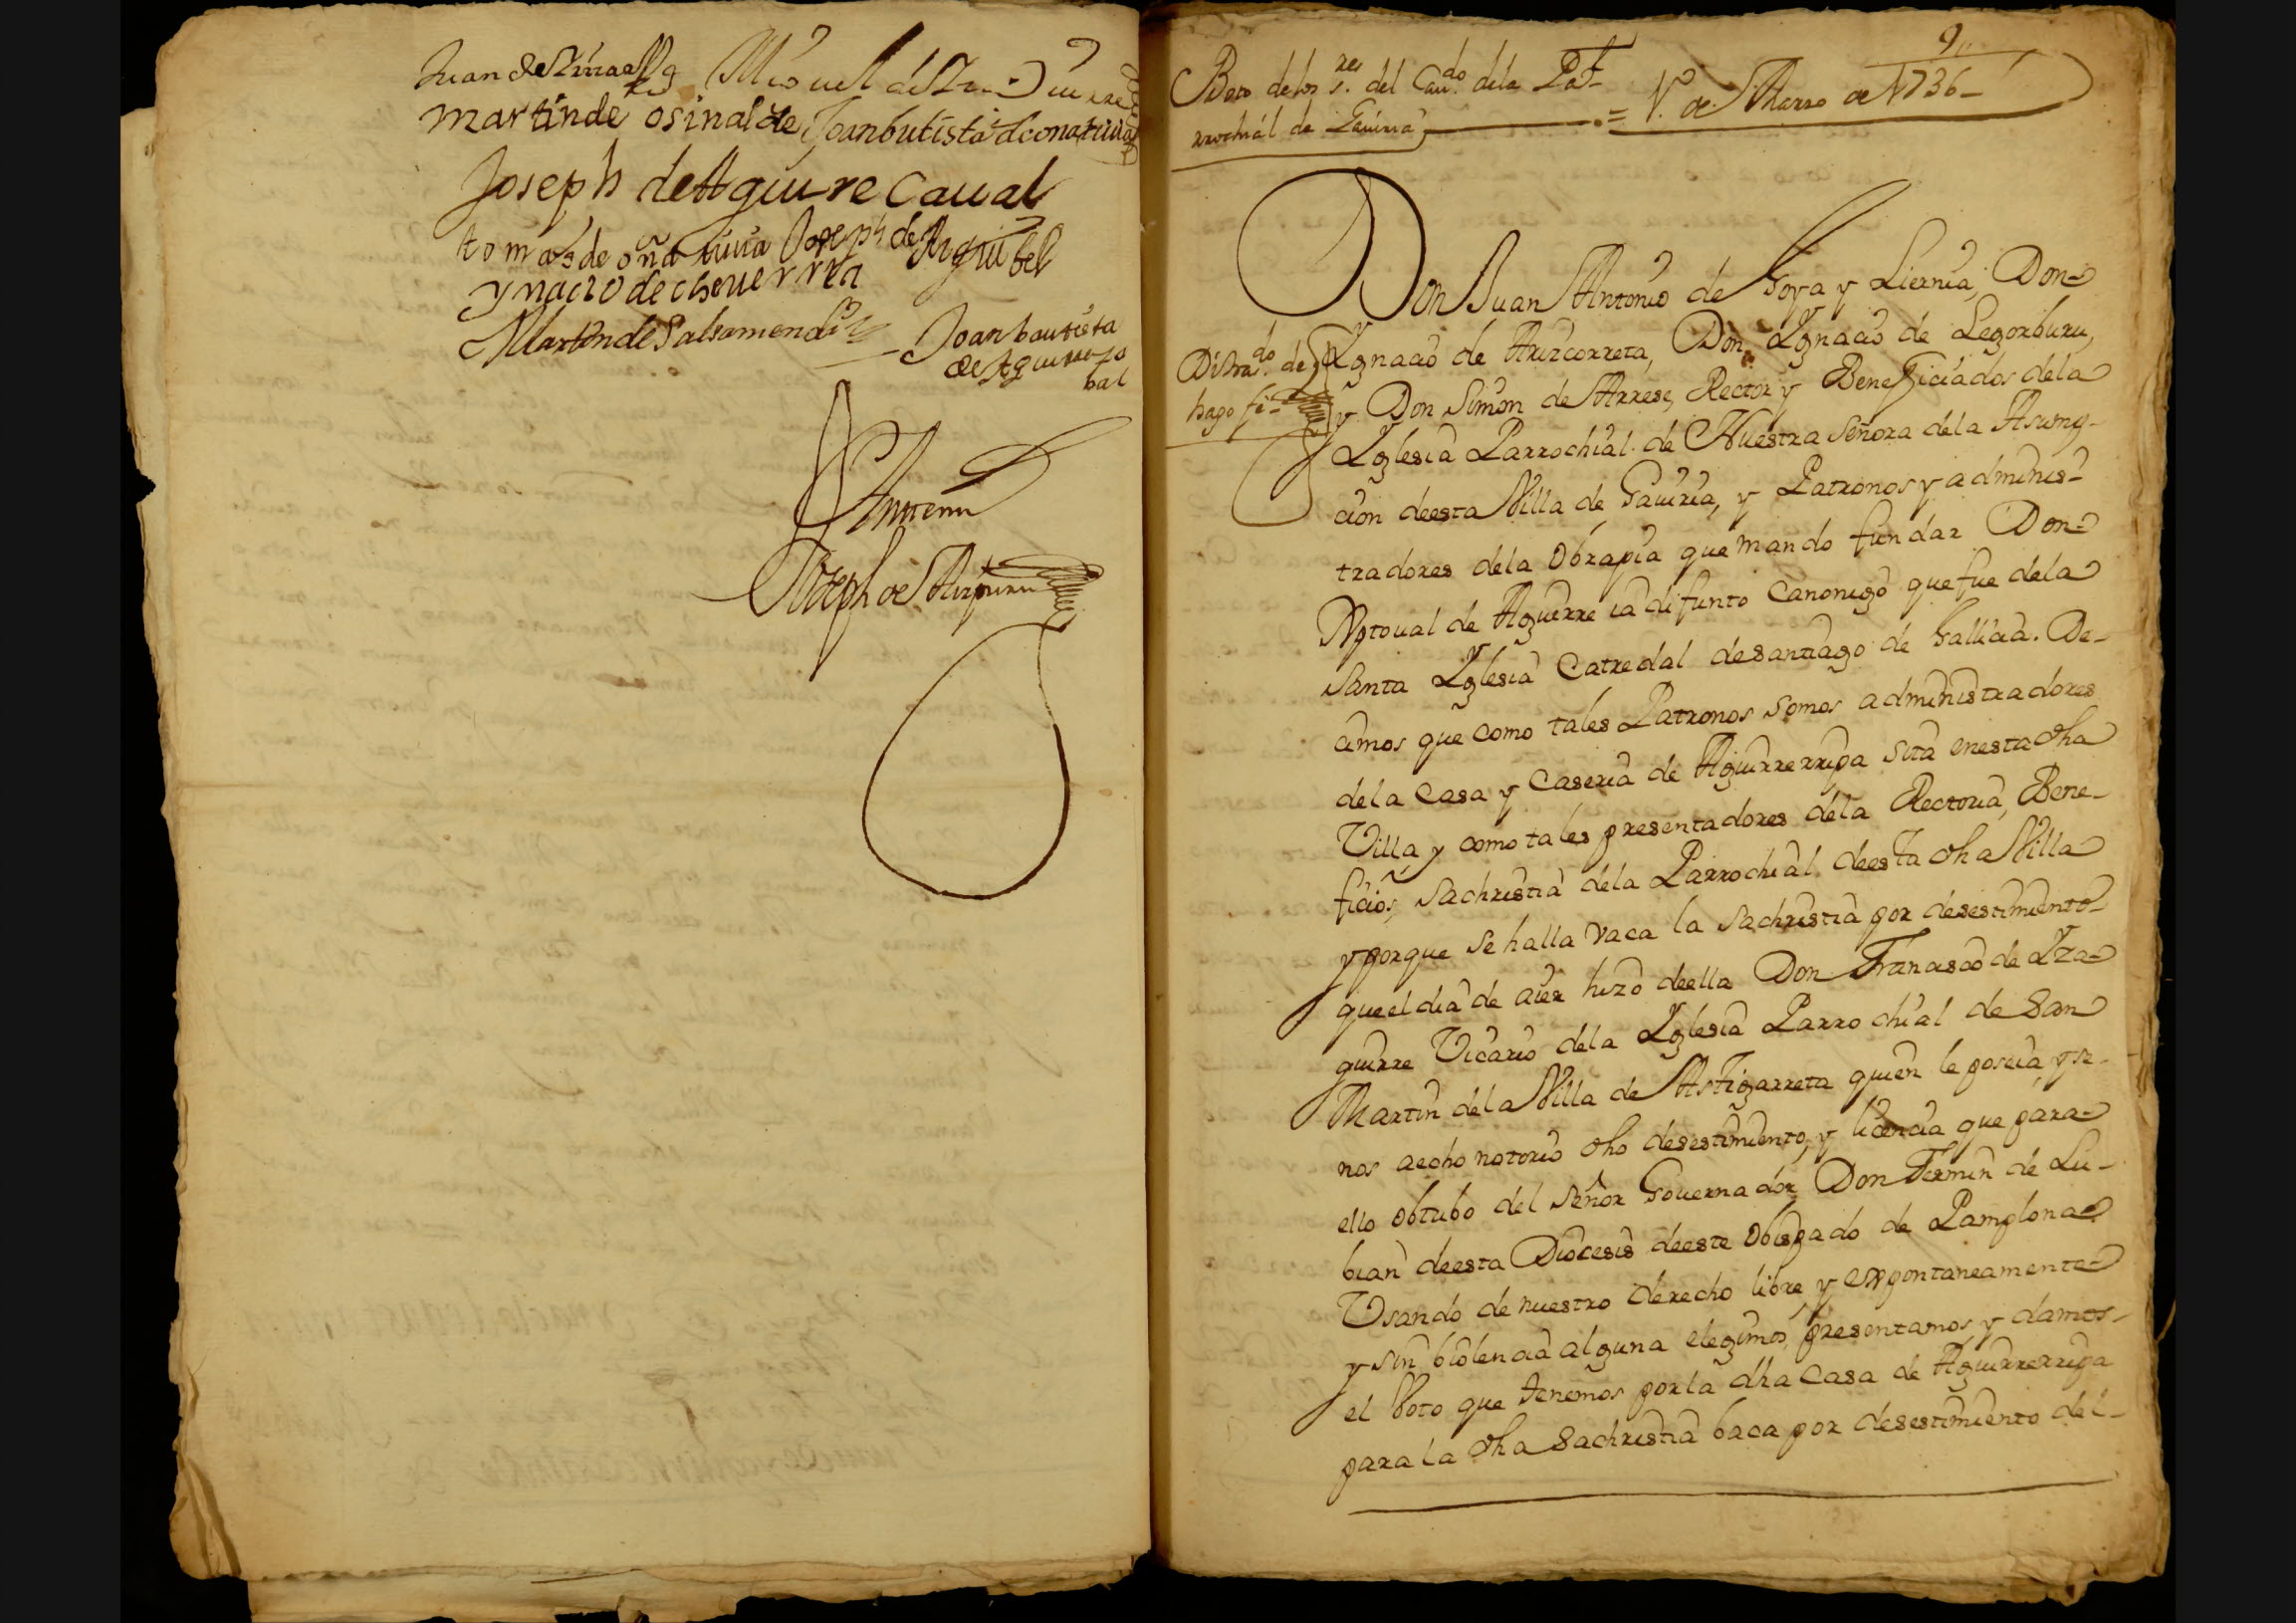 Juan de
Miguel de
martin de osinalde Joan butista de onatiuia
Joseph de Aguirre Caual
tomas de oña tiuia Joseph de Arguibel
ynacio de echeuerria
Martin de Salsamendi
Joan bautista
de Aguirre
bal
Antemi
Joseph de
9
Boto de los s.res del Cau.do de la Pa-
rrochial de Gauiria = 1.º de Marzo de 1736
Don Juan Antonio de Goya y Liernia, Don
Ygnacio de Arizcorreta, Don Ygnacio de Legorburu,
Di tras.do de
hago fe
y Don Simon de Arrese, Rector y Beneficiados dela
Yglesia Parrochial de Nuestra Señora dela Asump-
cion deesta Villa de Gauiria, y Patronos y adminis-
tradores dela Obrapia que mando fundar Don
Xptoual de Aguirre ia difunto Canonigo que fue dela
Santa Yglesia Catredal de santiago de Gallicia. De-
cimos que como tales Patronos somos administradores
dela Casa y Caseria de Aguirrerripa sita enesta dha
Villa, y como tales presentadores dela Rectoria, Bene-
ficios, sachristia dela Parrochial deesta dha Villa
y porque se halla vaca la sachristia por desestimiento
que el dia de aier hizo deella Don Francisco de Yza-
guirre Vicario dela Yglesia Parrochial de San
Martin dela Villa de Astigarreta quien le poseia, y se
nos aecho notorio dho desestimiento, y licencia que para
ello obtubo del señor Gouernador Don Fermin de Lu-
bian deesta Diocesis deeste Obispado de Pamplona
Vsando de nuestro derecho libre, y expontaneamente
y sin biolencia alguna elegimos, presentamos, y damos
el Voto que tenemos por la dha Casa de Aguirrerripa
para la dha Sachristia baca por desestimiento del